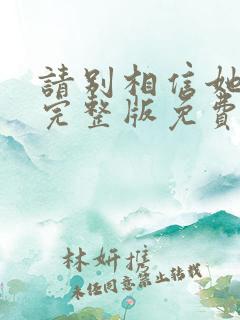 請别相信她
完整版免費
林妍推
未任同意禁止转载